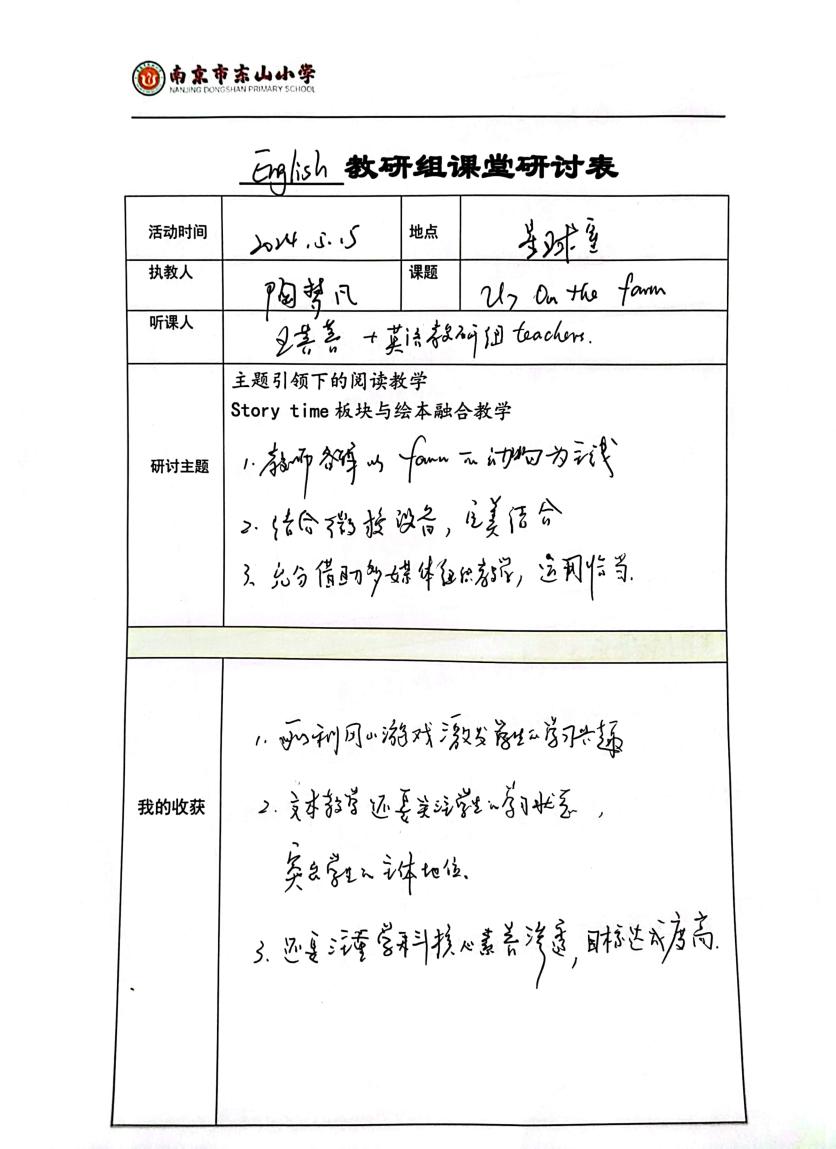 南京市东山小学
NANJING DONGSHAN PRIMARY SCHOOL
English 教研组课堂研讨表
活动时间 2024.5.15 地点 星球室
执教人 陶梦凡 课题 U7 On the farm
听课人 王其善 + 英语教研组 teachers.
主题引领下的阅读教学
Story time 板块与绘本融合教学
研讨主题
1. 教师 以 farm 的动物为主线
2. 结合微格设备，完美结合
3、充分借助多媒体组织教学，运用恰当.
我的收获
1. 利用小游戏激发学生的学习兴趣
2. 文本教学还要关注学生的学习状态，
突出学生的主体地位。
3. 还要注重学科核心素养渗透，目标达成度高.